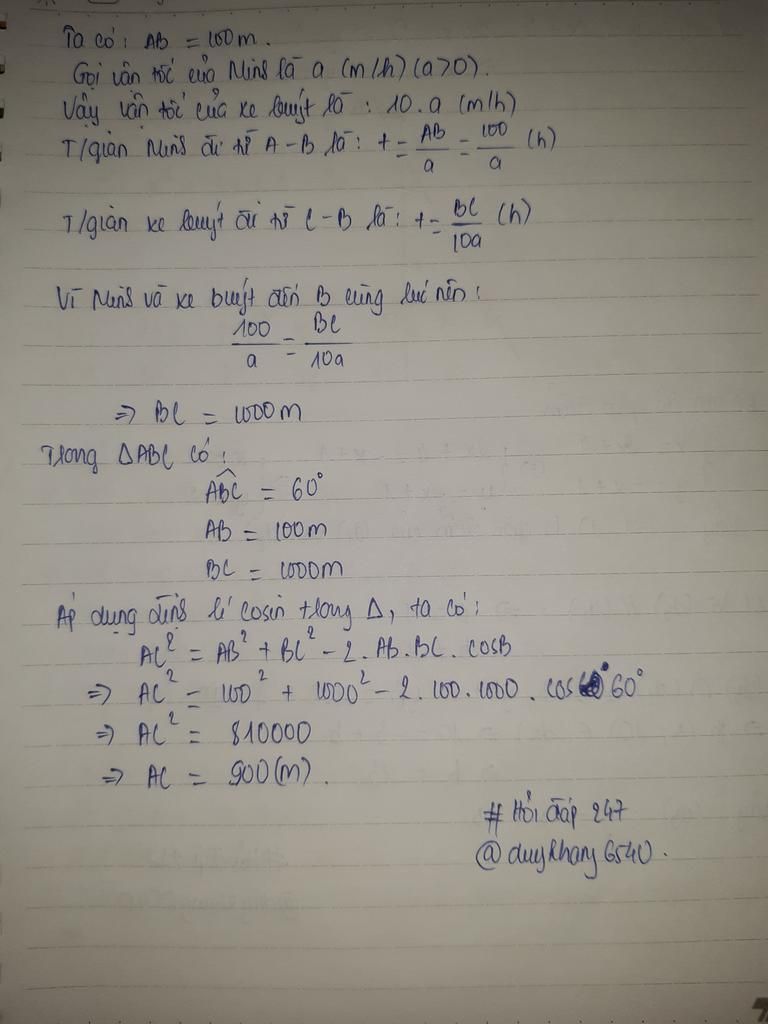 Ta có: AB = 100m.
Gọi vận tốc của Minh là a (m/h) (a>0).
Vậy vận tốc của xe buýt là: 10.a (m/h)
T/gian Minh đi từ A-B là: t = AB/a = 100/a (h)
T/gian xe buýt đi từ C-B là: t = BC/10a (h)
Vì Minh và xe buýt đến B cùng lúc nên:
100/a = BC/10a
⇒ BC = 1000m
Trong ΔABC có:
ABC = 60°
AB = 100m
BC = 1000m
Áp dụng định lí cosin trong Δ, ta có:
AC² = AB² + BC² - 2.AB.BC.cosB
⇒ AC² = 100² + 1000² - 2.100.1000.cos 60°
⇒ AC² = 810000
⇒ AC = 900(m).
# Hỏi đáp 247
@duykhang6540.